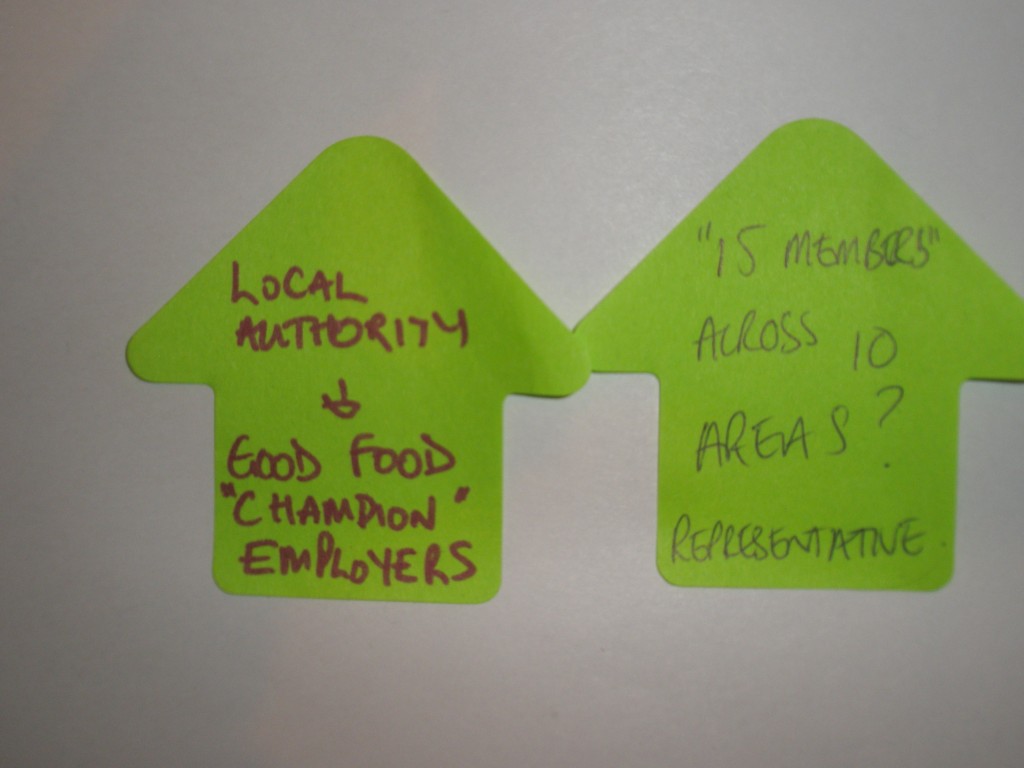 LOCAL
AUTHORITY
↓
GOOD FOOD
"CHAMPION"
EMPLOYERS
"15 MEMBERS"
ACROSS 10
AREAS?
REPRESENTATIVE.